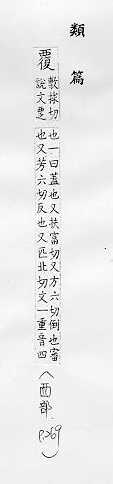 類篇
覆 敷捄切說文覂
也一曰蓋也又扶富切又方六切倒也審
也又芳六切反也又匹北切文一重音四
(襾部) p.269